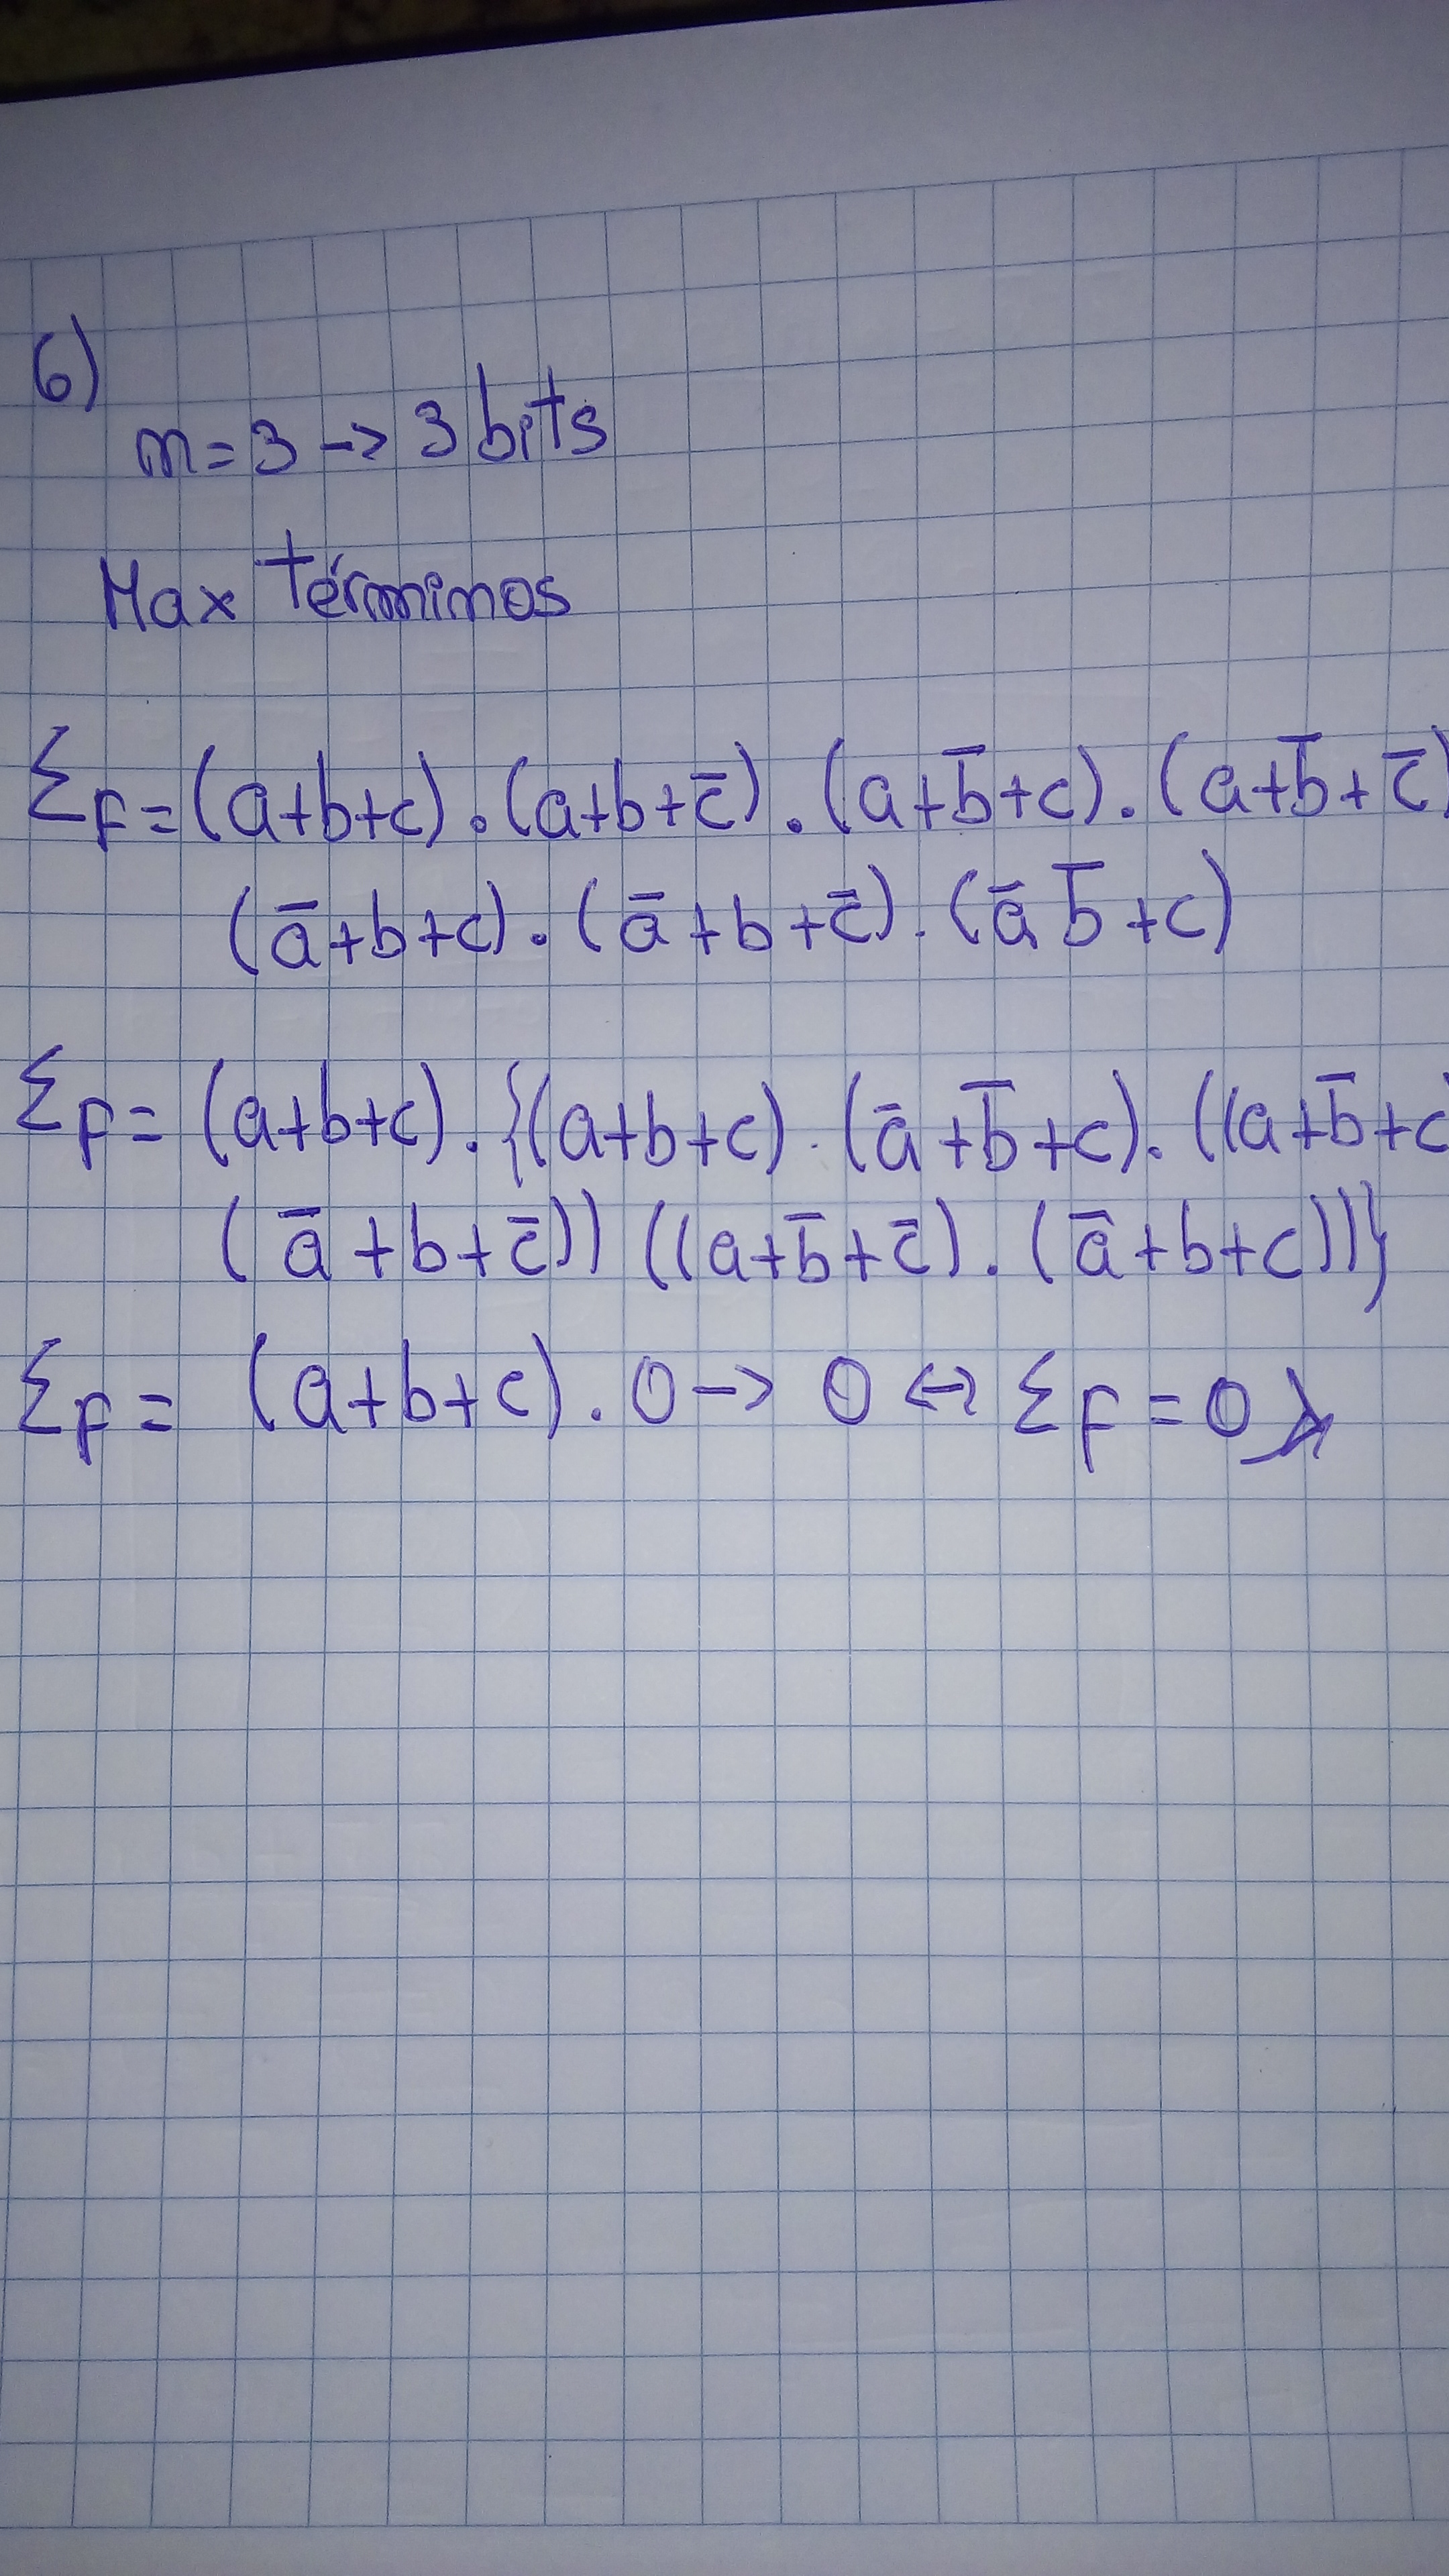 6)
m=3 -> 3 bits
Max Términos
Σ_F = (a+b+c).(a+b+c̄).(a+b̄+c).(a+b̄+c̄)
(ā+b+c).(ā+b+c̄).(ā b̄+c)
Σ_F = (a+b+c).{(a+b+c).(ā+b̄+c).((a+b̄+c)
(ā+b+c̄)) ((a+b̄+c̄).(ā+b+c))}
Σ_F = (a+b+c).0 -> 0 <-> Σ_F = 0